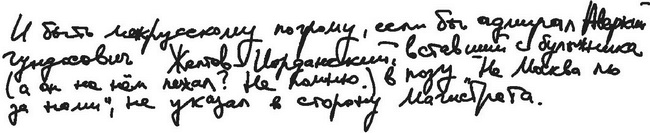 И быть межрусскому погрому, если бы адмирал Аверкий
Гундосович Желтов-Иорданский, вставший с булыжника
(а он на нём лежал? Не помню.) в позу "Не Москва ль
за нами", не указал в сторону магистрата.